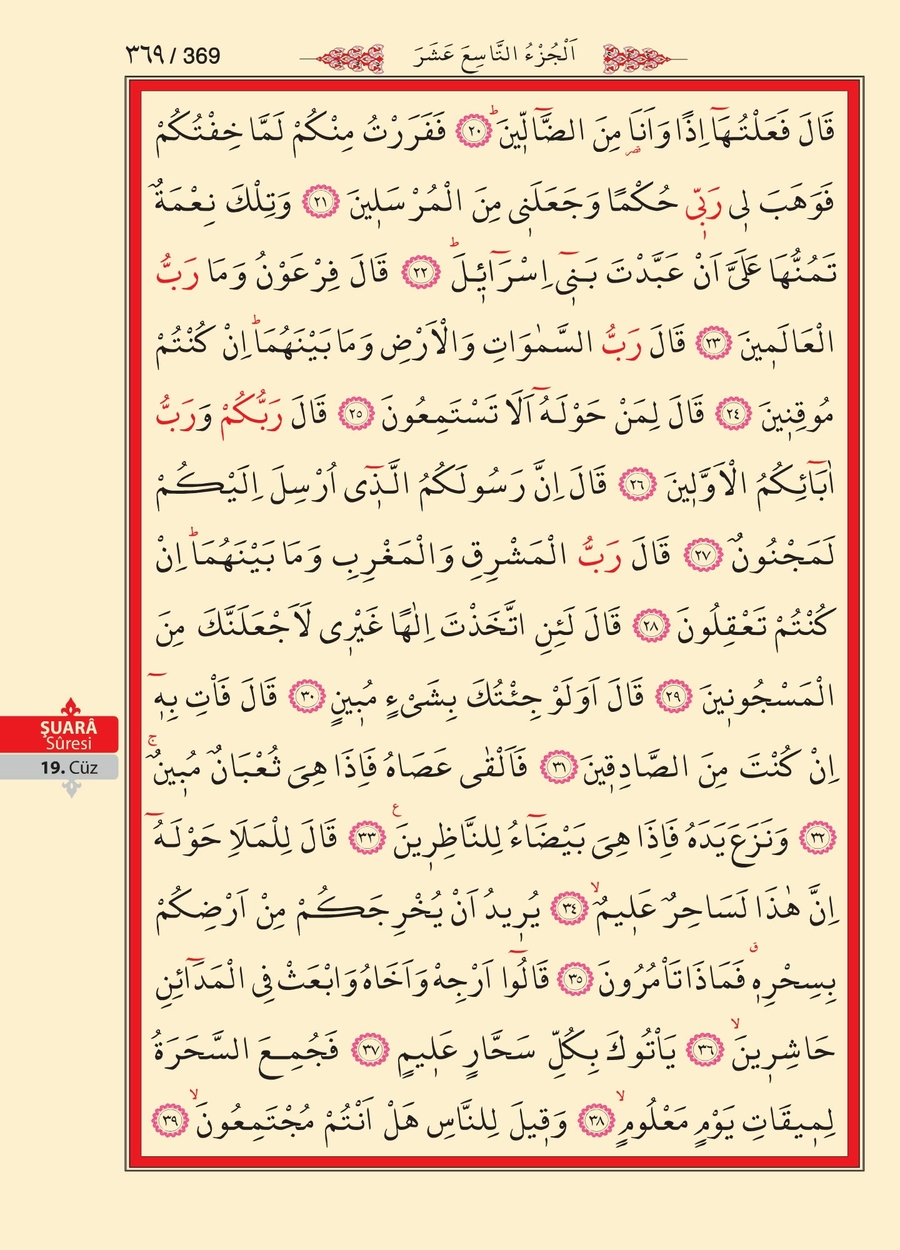 ٣٦٩ / 369
اَلْجُزْءُ التَّاسِعَ عَشَرَ
قَالَ فَعَلْتُهَٓا اِذًا وَاَنَا۬ مِنَ الضَّٓالّ۪ينَۜ ﴿٢٠﴾ فَفَرَرْتُ مِنْكُمْ لَمَّا خِفْتُكُمْ
فَوَهَبَ ل۪ي رَبّ۪ي حُكْمًا وَجَعَلَن۪ي مِنَ الْمُرْسَل۪ينَ ﴿٢١﴾ وَتِلْكَ نِعْمَةٌ
تَمُنُّهَا عَلَيَّ اَنْ عَبَّدْتَ بَن۪ٓي اِسْرَٓائ۪يلَۜ ﴿٢٢﴾ قَالَ فِرْعَوْنُ وَمَا رَبُّ
الْعَالَم۪ينَ ﴿٢٣﴾ قَالَ رَبُّ السَّمٰوَاتِ وَالْاَرْضِ وَمَا بَيْنَهُمَاۜ اِنْ كُنْتُمْ
مُوقِن۪ينَ ﴿٢٤﴾ قَالَ لِمَنْ حَوْلَهُٓ اَلَا تَسْتَمِعُونَ ﴿٢٥﴾ قَالَ رَبُّكُمْ وَرَبُّ
اٰبَٓائِكُمُ الْاَوَّل۪ينَ ﴿٢٦﴾ قَالَ اِنَّ رَسُولَكُمُ الَّذ۪ٓي اُرْسِلَ اِلَيْكُمْ
لَمَجْنُونٌ ﴿٢٧﴾ قَالَ رَبُّ الْمَشْرِقِ وَالْمَغْرِبِ وَمَا بَيْنَهُمَاۜ اِنْ
كُنْتُمْ تَعْقِلُونَ ﴿٢٨﴾ قَالَ لَئِنِ اتَّخَذْتَ اِلٰهًا غَيْر۪ي لَاَجْعَلَنَّكَ مِنَ
الْمَسْجُون۪ينَ ﴿٢٩﴾ قَالَ اَوَلَوْ جِئْتُكَ بِشَيْءٍ مُب۪ينٍ ﴿٣٠﴾ قَالَ فَأْتِ بِه۪ٓ
اِنْ كُنْتَ مِنَ الصَّادِق۪ينَ ﴿٣١﴾ فَاَلْقٰى عَصَاهُ فَاِذَا هِيَ ثُعْبَانٌ مُب۪ينٌۚ
﴿٣٢﴾ وَنَزَعَ يَدَهُ فَاِذَا هِيَ بَيْضَٓاءُ لِلنَّاظِر۪ينَ۟ ﴿٣٣﴾ قَالَ لِلْمَلَأِ حَوْلَهُٓ
اِنَّ هٰذَا لَسَاحِرٌ عَل۪يمٌۙ ﴿٣٤﴾ يُر۪يدُ اَنْ يُخْرِجَكُمْ مِنْ اَرْضِكُمْ
بِسِحْرِه۪ۗ فَمَاذَا تَأْمُرُونَ ﴿٣٥﴾ قَالُٓوا اَرْجِهْ وَاَخَاهُ وَابْعَثْ فِي الْمَدَٓائِنِ
حَاشِر۪ينَۙ ﴿٣٦﴾ يَأْتُوكَ بِكُلِّ سَحَّارٍ عَل۪يمٍ ﴿٣٧﴾ فَجُمِعَ السَّحَرَةُ
لِم۪يقَاتِ يَوْمٍ مَعْلُومٍۙ ﴿٣٨﴾ وَق۪يلَ لِلنَّاسِ هَلْ اَنْتُمْ مُجْتَمِعُونَۙ ﴿٣٩﴾
ŞUARÂ
Sûresi
19. Cüz